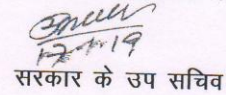 17-1-19
सरकार के उप सचिव